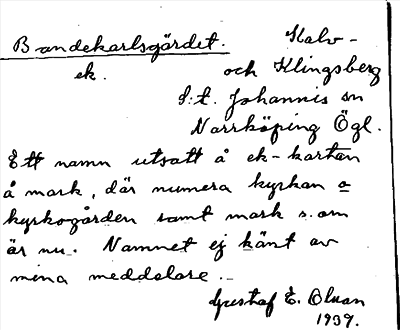 Bondekarlsgärdet. Halv-
ek. och Klingsberg
S:t. Johannis sn
Norrköping Ögl.
Ett namn utsatt å ek-kartan
å mark, där numera kyrkan o
kyrkogården samt mark s.om
är nu. Namnet ej känt av
mina meddelare._
Gustaf E. Olsson
1939.